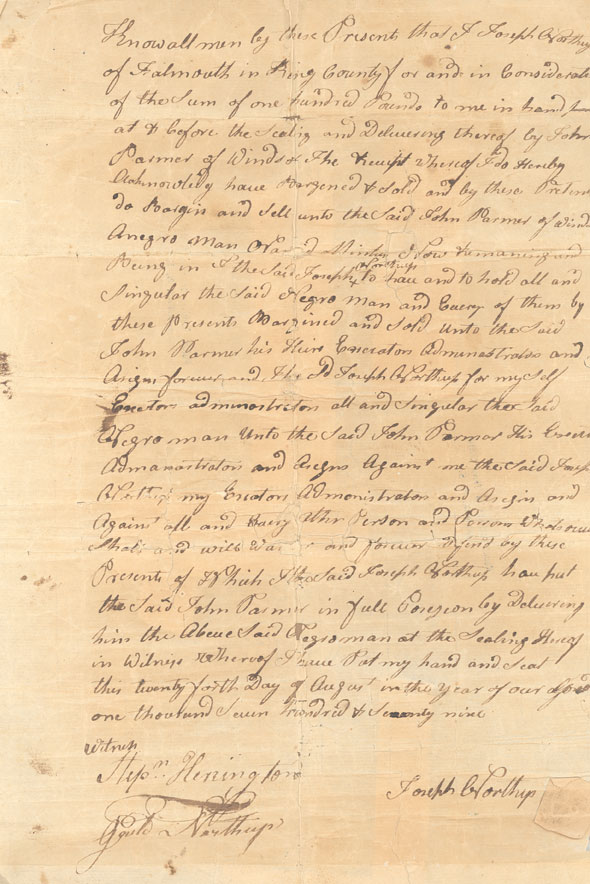 Know all men by these Presents that I Joseph Northup
of Falmouth in King County for and in Considerate
of the Sum of one hundred Pounds to me in hand
at & before the Sealig and Delivering thereof by John
Parmer of Winds & The Receipt Whereof I do Hereby
Acknowlidg have Bargened & Sold and by these Presents
do Bargin and Sell unto the Said John Parmer of Wind
Anegro man Now Remaining and
Being in I the Said Joseph Northup to hau and to hold all and
Singular the Said Negro man and Every of them by
these Presents Bargined and Sold Unto the Said
John Parmer his Heirs Exerators Admenastrators and
Asigns forever and I the Sd Joseph Northup for my Self
Exators administrators all and Singular the Said
Negro man Unto the Said John Parmar His
Admanastrators and Asegns Against me the Said Joseph
Northup my Exators Admenistrators and Asegin and
Against all and Every Uthr Person and Persons Whatsoever
Shall and will and forever Defend by these
Presents of Which I the Said Joseph Northup hau put
the Said John Parmer in full Posezeon by Delivering
him the Aboue Said Negro man at the Sealing Hereof
in Witness Whereof I haue Put my hand and Seal
this twenty forth Day of August in the year of our Lord
one thousand Seven Hundred & Seuenty nine
Witness
Stepn. Herrington
Joseph Northup
Gould Northup